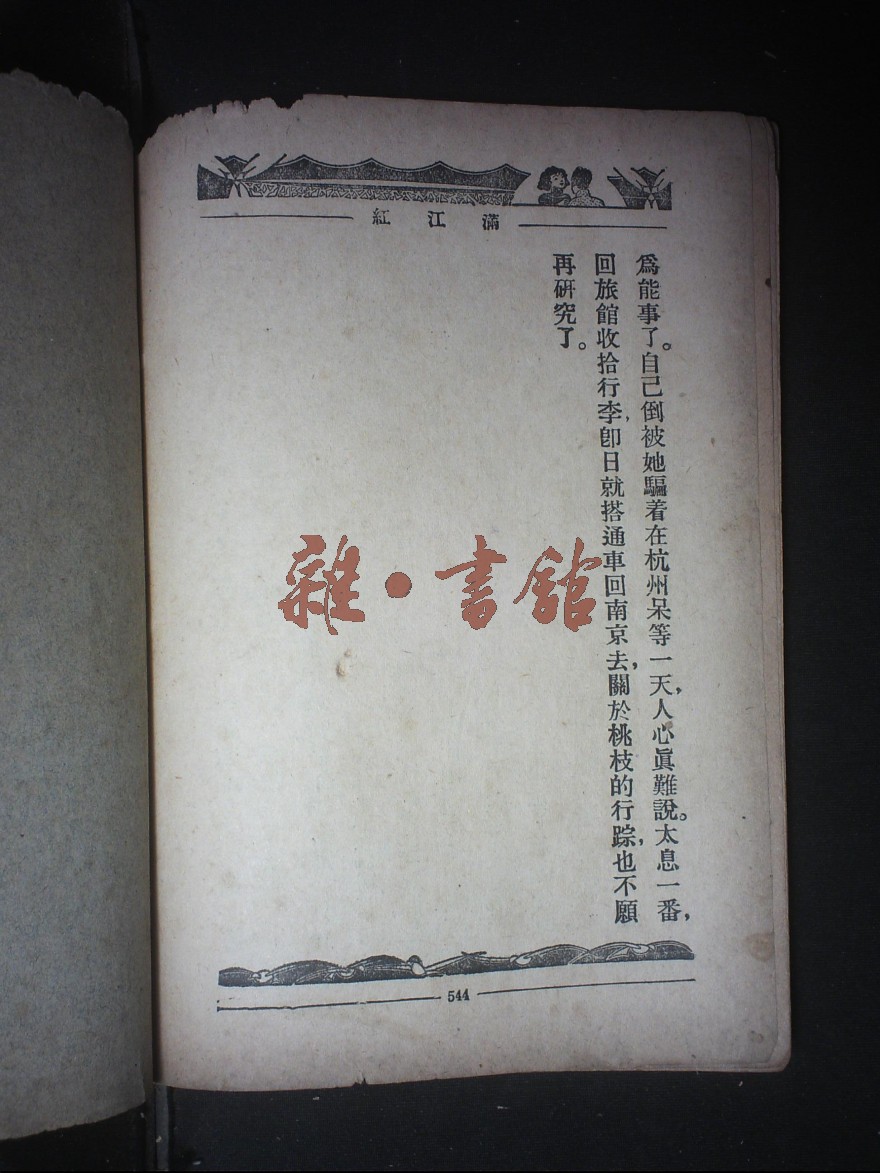 滿江紅
爲能事了。自己倒被她騙着在杭州呆等一天，人心眞難說。太息一番，
回旅館收拾行李，卽日就搭通車回南京去，關於桃枝的行踪，也不願
再硏究了。
雜•書館
544